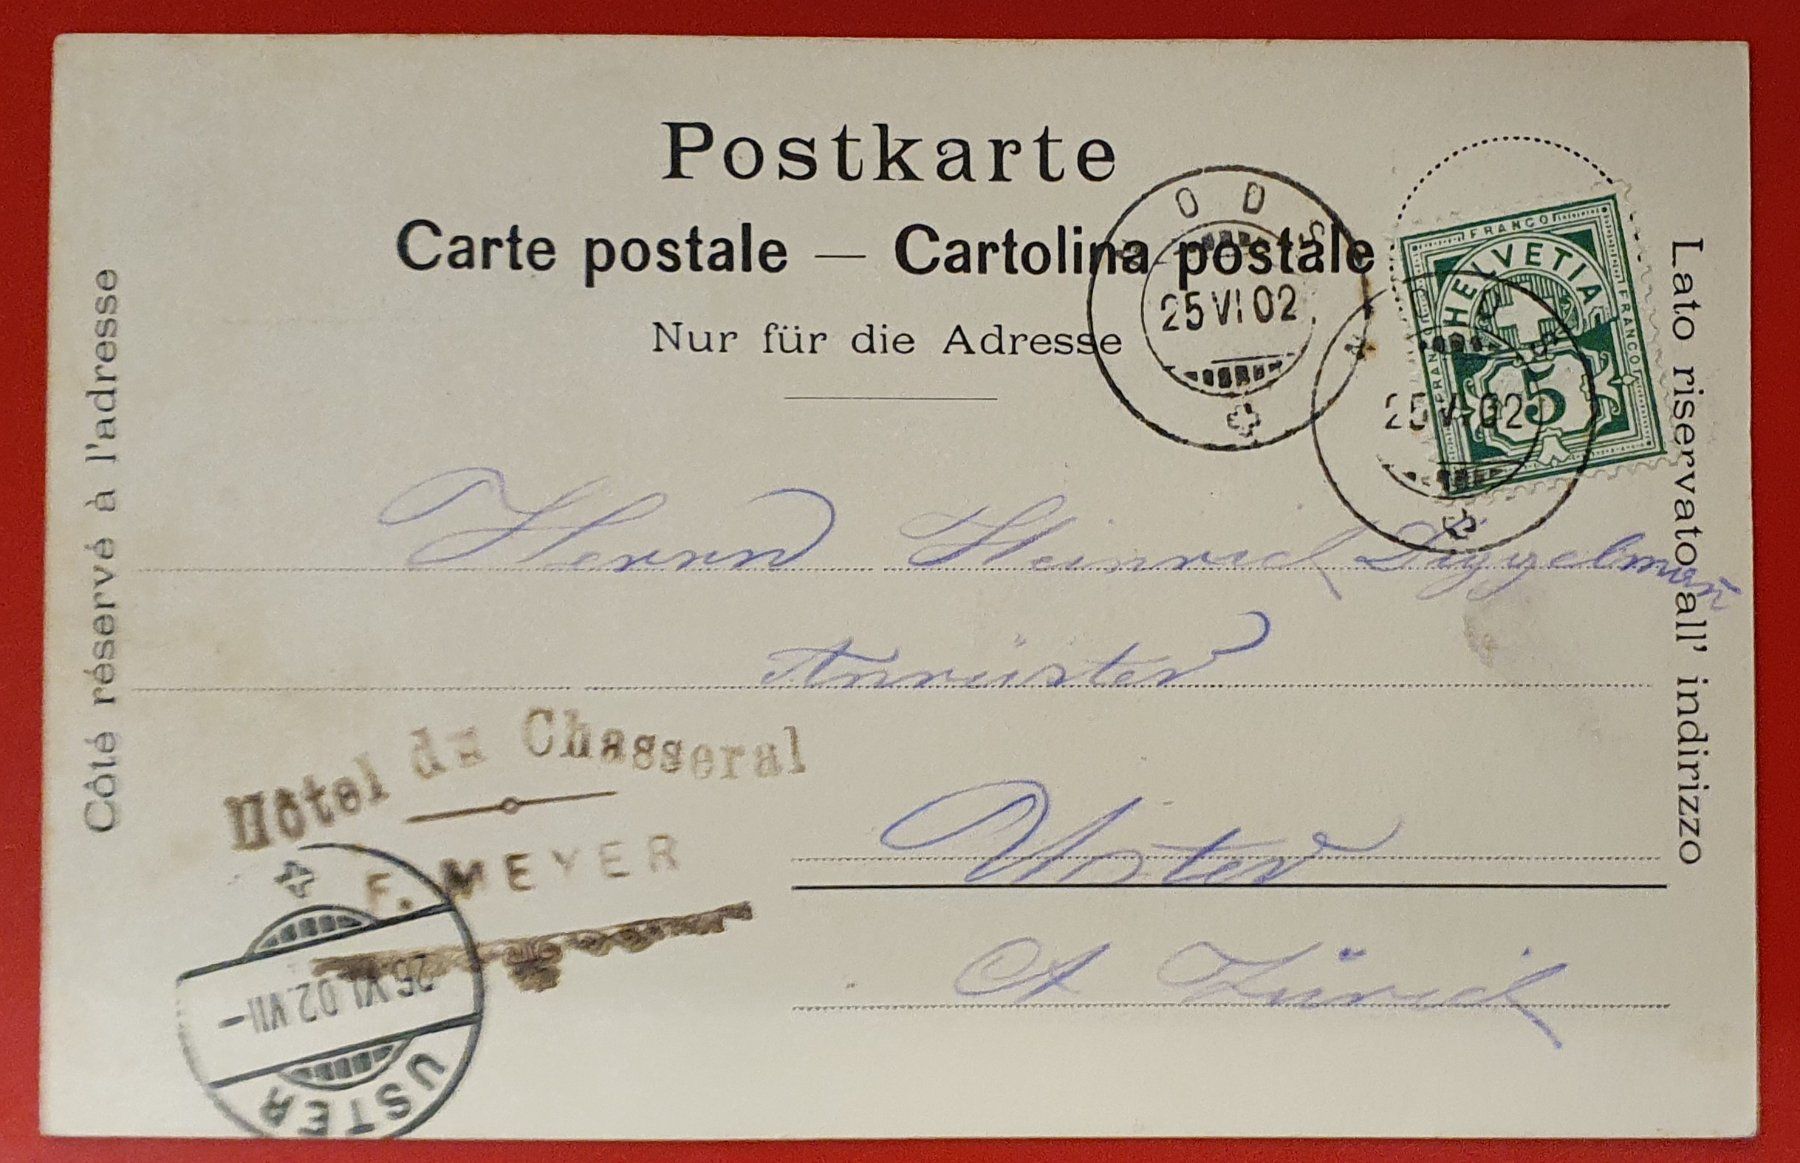 Postkarte
Carte postale — Cartolina postale
Nur für die Adresse
Côté réservé à l'adresse
Lato riservato all' indirizzo
NODS
25 VI 02
FRANCO
HELVETIA
FRANCO
FRANCO
5
25 VI 02
Herrn Heinrich Diggelman̄
Uster
Ct Zürich
Hôtel du Chasseral
F. MEYER
26.VI.02.VII–
USTER